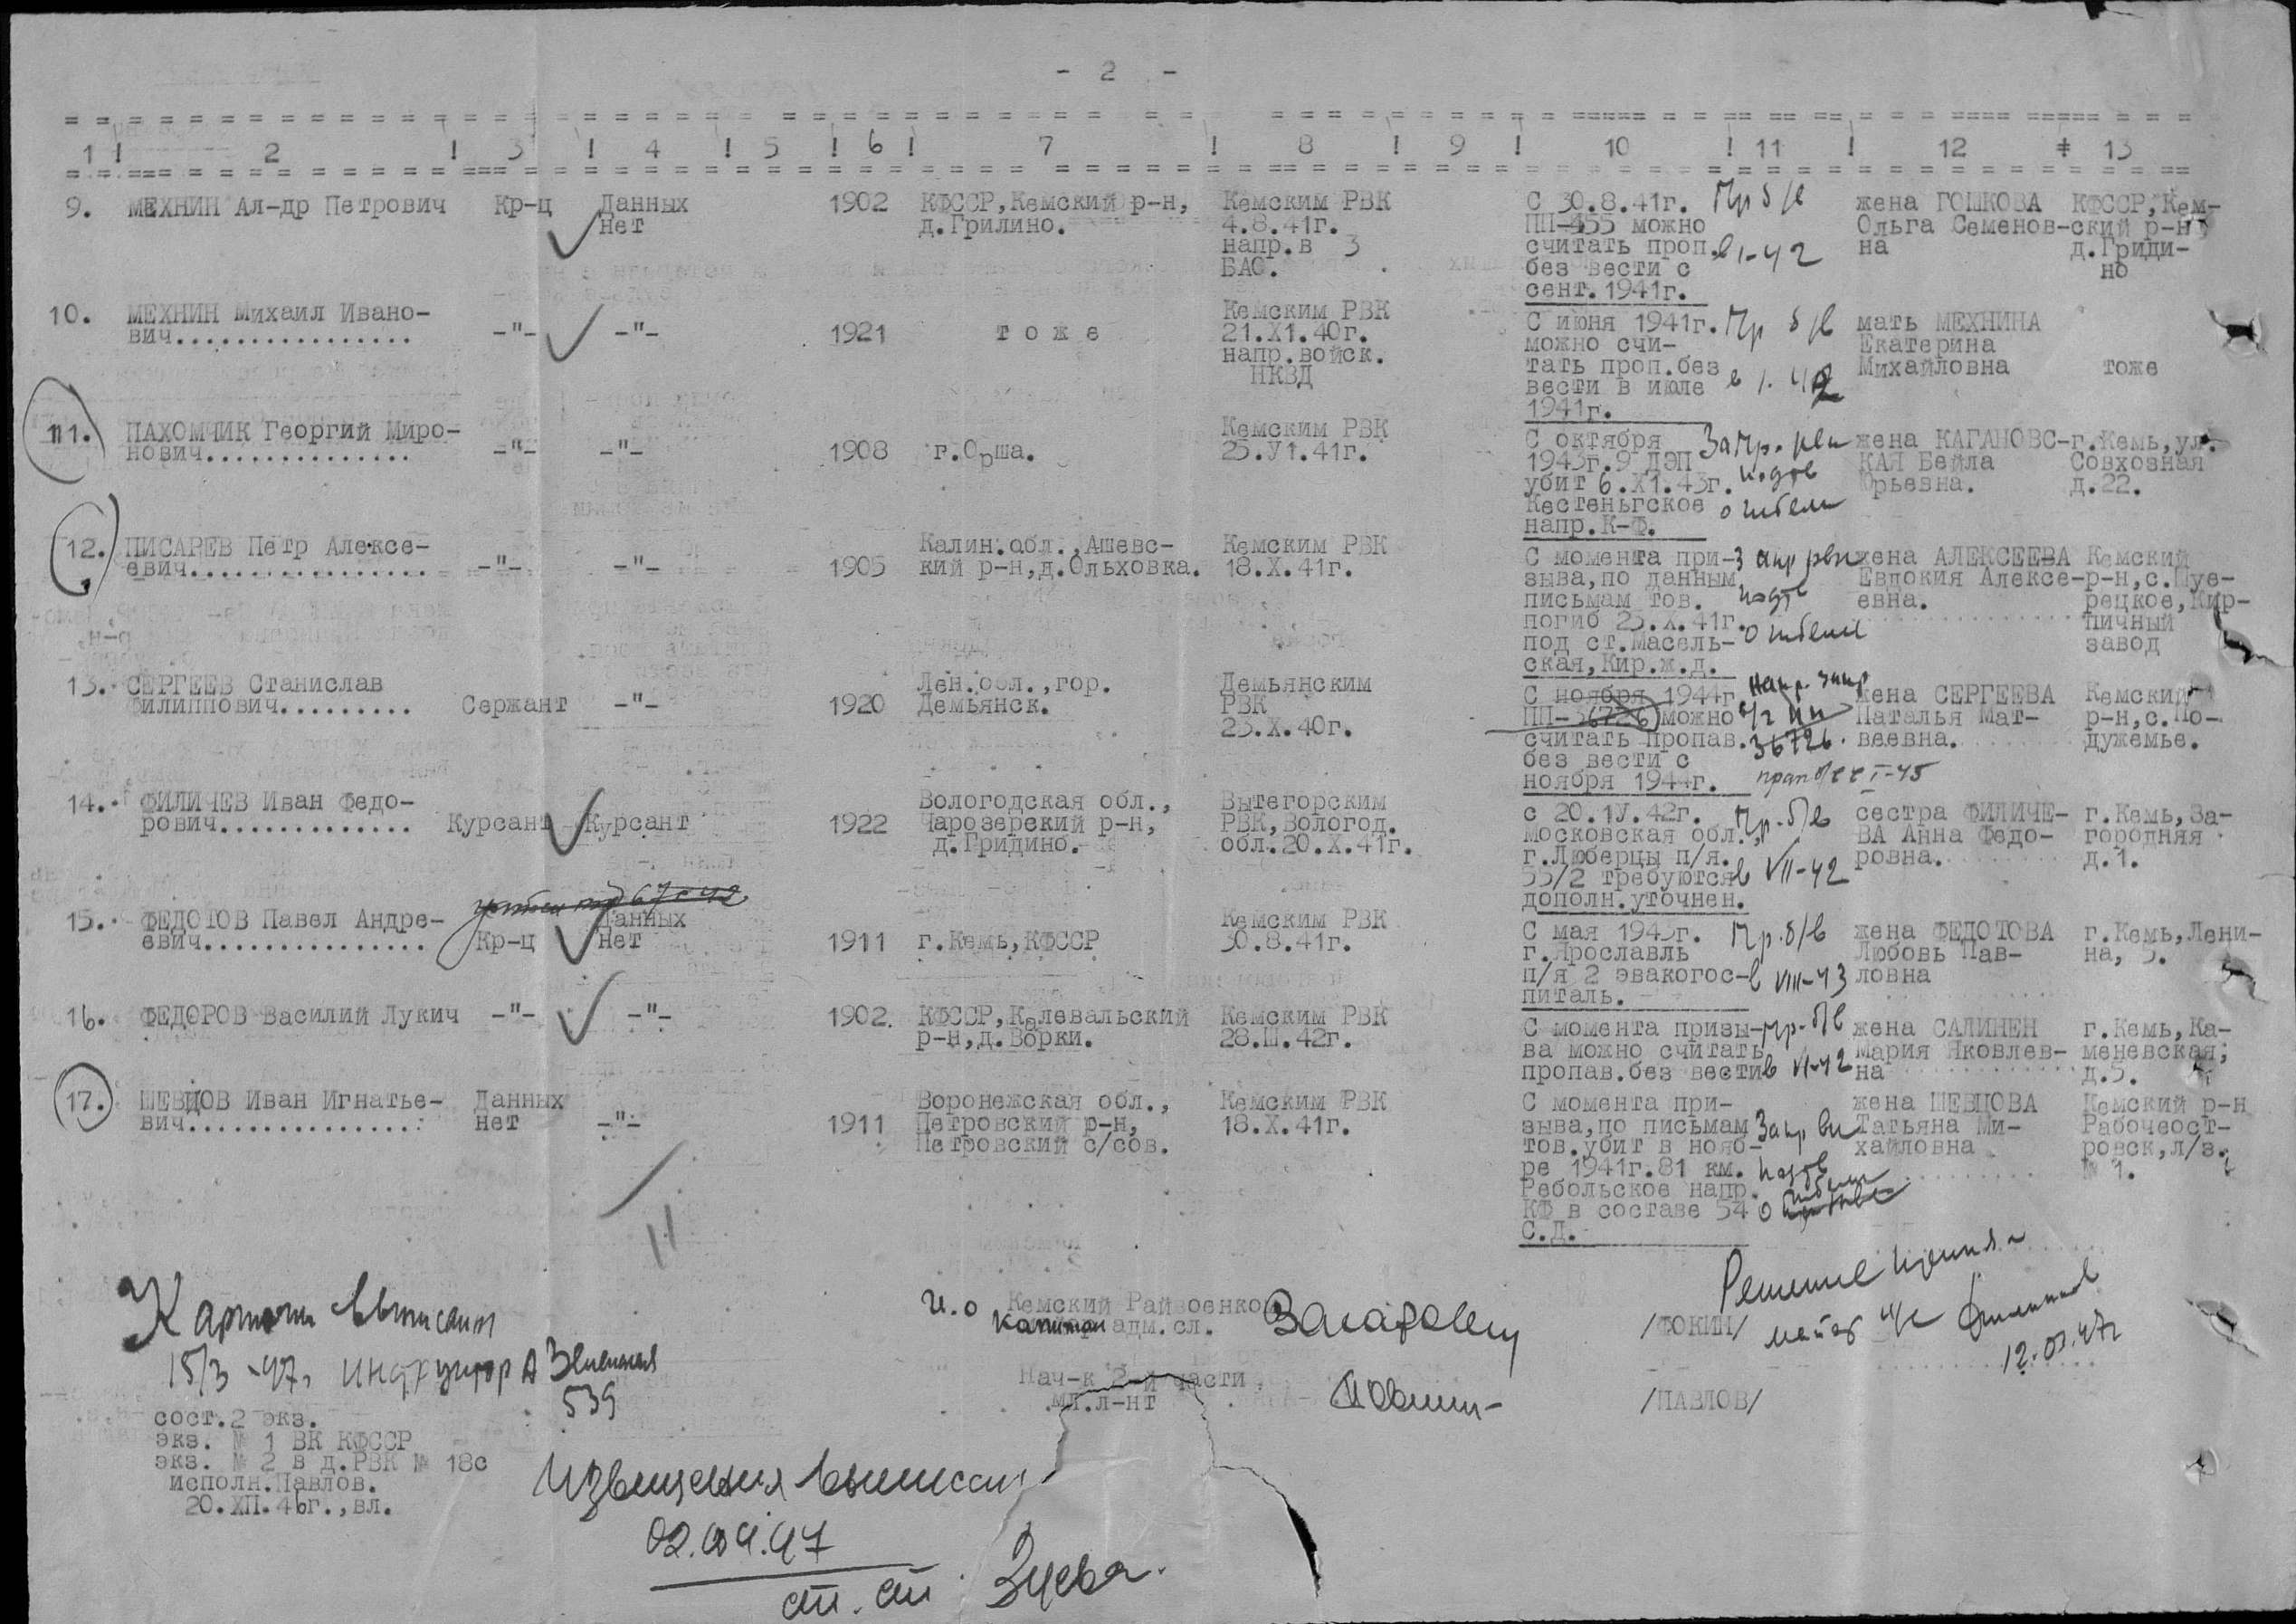 - 2 -
1 ! 2 ! 3 ! 4 ! 5 ! 6 ! 7 ! 8 ! 9 ! 10 ! 11 ! 12 ! 13
9. МЕХНИН Ал-др Петрович Кр-ц Данных 1902 КФССР,Кемский р-н, Кемским РВК С 30.8.41г. Пр б/в жена ГОШКОВА КФССР,Кем-
нет д.Грилино. 4.8.41г. ПП-455 можно Ольга Семенов- ский р-н
напр.в 3 считать проп. в 1-42 на д.Гриди-
БАО. без вести с но
сент.1941г.
10. МЕХНИН Михаил Ивано- Кемским РВК С июня 1941г. Пр б/в мать МЕХНИНА
вич................ -"- -"- 1921 т о ж е 21.Х1.40г. можно счи- Екатерина
напр.войск. тать проп.без Михайловна тоже
НКВД вести в июле в 1.42
1941г.
11. ПАХОМЧИК Георгий Миро- Кемским РВК С октября жена КАГАНОВС- г.Кемь,ул.
нович.............. -"- -"- 1908 г.Орша. 25.У1.41г. 1943г.9 ДЭП КАЯ Бейла Совхозная
убит 6.Х1.43г. подтв Юрьевна. д.22.
Кестеньгское о гибели
напр.К-Ф.
12. ПИСАРЕВ Петр Алексе- Калин.обл.,Ашевс- Кемским РВК С момента при- жена АЛЕКСЕЕВА Кемский
евич................ -"- -"- 1905 кий р-н,д.Ольховка. 18.Х.41г. зыва,по данным Евдокия Алексе- р-н,с.Шуе-
письмам тов. подтв евна. рецкое,Кир-
погиб 23.Х.41г. о гибели пичный
под ст.Масель- завод
ская,Кир.ж.д.
13. СЕРГЕЕВ Станислав Лен.обл.,гор. Демьянским С ноября 1944г. жена СЕРГЕЕВА Кемский
Филиппович......... Сержант -"- 1920 Демьянск. РВК ПП-36726 можно Наталья Мат- р-н,с.По-
23.Х.40г. считать пропав. 36726. веевна. дужемье.
без вести с
ноября 1944г. I-45
14. ФИЛИЧЕВ Иван Федо- Вологодская обл., Вытегорским с 20.1У.42г. Пр.б/в сестра ФИЛИЧЕ- г.Кемь,За-
рович............. Курсант Курсант 1922 Чарозерский р-н, РВК,Вологод. Московская обл., ВА Анна Федо- городняя
д.Гридино. обл.20.Х.41г. г.Люберцы п/я. ровна. д.1.
55/2 требуются в VII-42
дополн.уточнен.
15. ФЕДОТОВ Павел Андре- Данных Кемским РВК С мая 1943г. Пр.б/в жена ФЕДОТОВА г.Кемь,Лени-
евич............... Кр-ц нет 1911 г.Кемь,КФССР 30.8.41г. г.Ярославль Любовь Пав- на, 5.
п/я 2 эвакогос- в VIII-43 ловна
питаль.
16. ФЕДОРОВ Василий Лукич -"- -"- 1902. КФССР,Калевальский Кемским РВК С момента призы- Пр-б/в жена САЛИНЕН г.Кемь,Ка-
р-н,д.Ворки. 28.Ш.42г. ва можно считать Мария Яковлев- меневская,
пропав.без вести в VI-42 на д.5.
17. ШЕВЦОВ Иван Игнатье- Данных Воронежская обл., Кемским РВК С момента при- жена ШЕВЦОВА Кемский р-н
вич................ нет -"- 1911 Петровский р-н, 18.Х.41г. зыва,по письмам Татьяна Ми- Рабочеост-
Петровский с/сов. тов.убит в нояб- хайловна ровск,л/з.
ре 1941г.81 км. подтв № 1.
Ребольское напр. гибели
КФ в составе 54 о
С.Д.
11
Карточки выписаны
15/3-47г
539
И.о Кемский Райвоенком /ФОКИН/
капитан адм.сл.
Нач-к 2-й части
мл.л-нт /ПАВЛОВ/
12.03.47г
сост.2 экз.
экз. № 1 ВК КФССР
экз. № 2 в д.РВК № 18с
исполн.Павлов.
20.ХП.46г.,вл.
Извещения выписаны
02.04.47
Зуева.